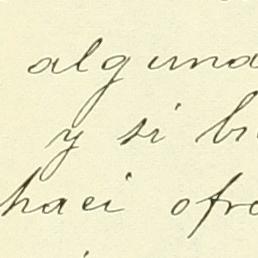 alguna
y si bi
haci ofre